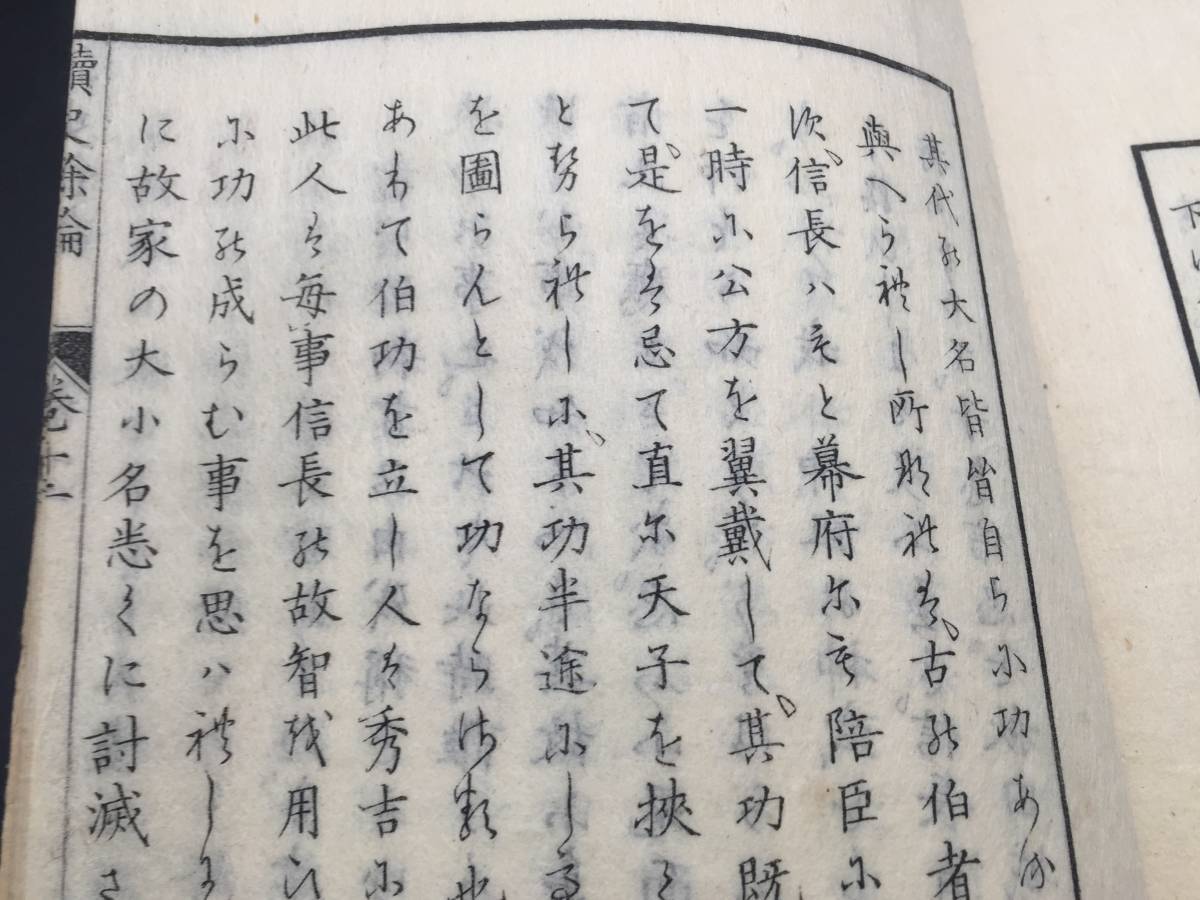 其代能大名皆皆自ら尓功あ
與へら禮し所那禮者、古能伯者
次、信長ハもと幕府尓も陪臣尓
一時尓公方を翼戴して、其功既
て、是を者忌て直尓天子を挾
と努ら禮し尓、其功半途尓し
を圖らんとして功ならぬ類也
あ里て伯功を立し人者秀吉尓
此人者毎事信長能故智越用ひ
尓功能成らむ事を思ハ禮し
に故家の大小名悉くに討滅さ
讀史餘論
卷十二
下